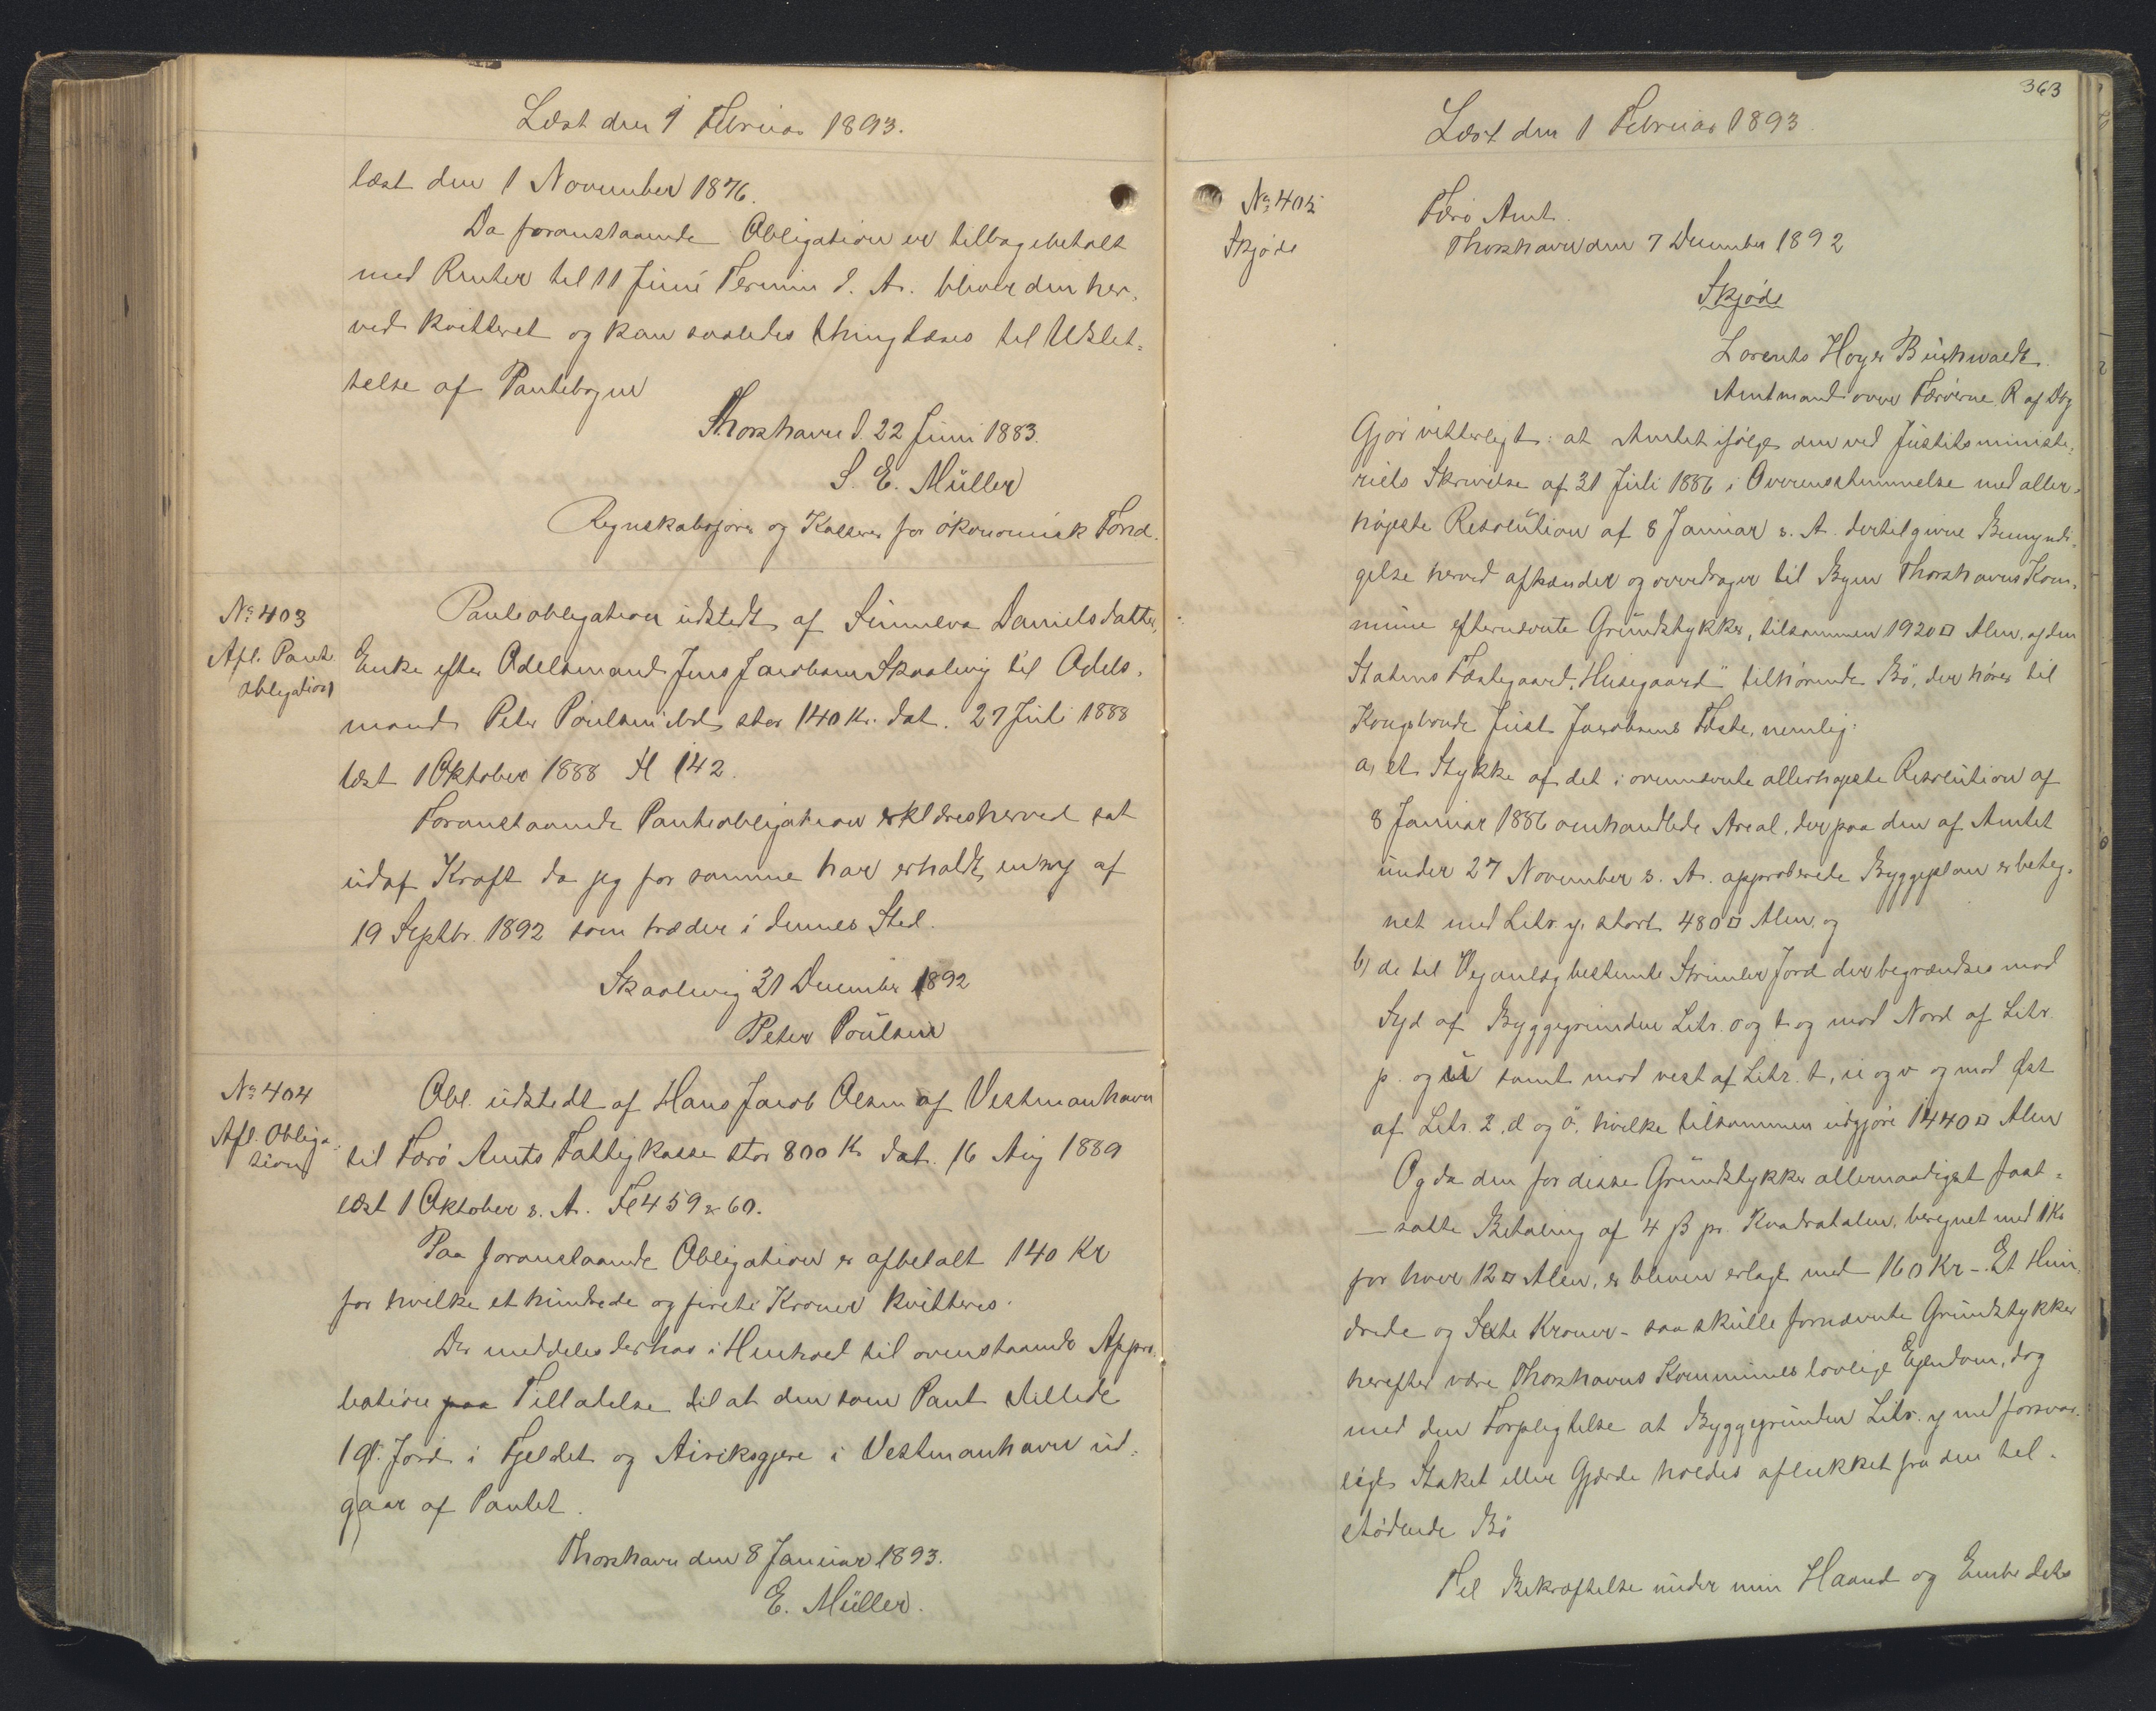 Læst den 1 Februar 1893.
læst den 1 November 1876.
Da foranstaaende Obligation er tilbagebetalt
med Renter til 11 Juni Termin d. A. bliver den her-
ved kvitteret og kan saaledes thinglæses til Udslet-
telse af Pantebogen
Thorshavn d. 22 Juni 1883.
S. E. Müller
Regnskabsfører og Kasserer for økonomisk Fond.
No 403
Afl. Pante
obligation
Panteobligation udstedt af Sunneva Danielsdatter,
Enke efter Odelsmand Jens Jacobsen Skaalevig til Odels-
mand Peter Poulsen ibd. stor 140 Kr. dat. 27 Juli 1888
læst 1 Oktober 1888 Fl 142.
Foranstaaende Panteobligation erklæres herved sat
udaf Kraft da jeg for samme har erholdt en ny af
19 Septbr. 1892 som træder i dennes Sted.
Skaalevig 31 December 1892
Peter Poulsen
No 404
Afl. Obliga-
tion
Obl. udstedt af Hans Jacob Olsen af Vestmanhavn
til Færö Amts Fattigkasse stor 800 Kr dat. 16 Aug 1889
læst 1 Oktober s. A. Fl 459 & 60.
Paa foranstaaende Obligation er afbetalt 140 Kr
for hvilke et hundrede og fireti Kroner kvitteres.
Der meddeles derhos i Henhold til ovenstaaende Appro-
bation paa Tilladelse til at den som Pant stillede
1 G. Jord i Fjeldet og Airiksgjere i Vestmanhavn ud-
gaar af Pantet.
Thorshavn den 8 Januar 1893.
E. Müller.
363
Læst den 1 Februar 1893.
No 405
Skjøde
Færö Amt.
Thorshavn den 7 December 1892
Skjøde
Lorents Høyer Buchwaldt.
Amtmand over Færøerne R af Dbg
Gjør vitterligt: at Amtet ifølge den ved Justitsministe-
riets Skrivelse af 31 Juli 1886 i Overensstemmelse med aller-
højeste Resolution af 8 Januar s. A. dertil givne Bemyndi-
gelse herved afhænder og overdrager til Byen Thorshavns Kom-
mune efternævnte Grundstykker, tilsammen 1920 □ Alen, af den
Statens Fæstegaard "Husegaard" tilhørende Bø, der hører til
Kongsbonde Just Jacobsens Fæste, nemlig:
a, et Stykke af det i ovennævnte allerhøjeste Resolution af
8 Januar 1886 omhandlede Areal, der paa den af Amtet
under 27 November s. A. approberede Byggeplan er beteg-
net med Litr. y, stort 480 □ Alen, og
b) de til Vejanlæg bestemte Strimler Jord der begrændses mod
Syd af Byggegrunden Litr. o og t og mod Nord af Litr.
p. og u samt mod vest af Litr. t, u og v og mod Øst
af Litr. z, æ og ö, hvilke tilsammen udgjøre 1440 □ Alen
Og da den for disse Grundstykker allernaadigst fast-
satte Betaling af 4 ß pr. Kvadratalen, beregnet med 1 Kr
for hver 12 □ Alen, er bleven erlagt med 160 Kr - Et Hun-
drede og Sexti Kroner - saa skulle fornævnte Grundstykker
herefter være Thorshavns Kommunes lovlige Ejendom, dog
med den Forpligtelse at Byggegrunden Litr. y med forsvar-
ligt Staket eller Gjærde holdes aflukket fra den til-
stødende Bø
Til Bekræftelse under min Haand og Embedets